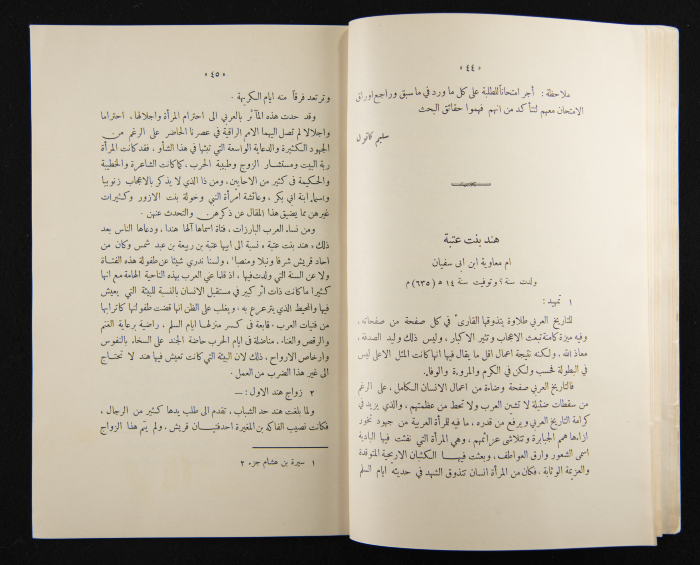 « ٤٤ »
ملاحظة : أجر امتحاناً للطلبة على كل ما ورد في ما سبق وراجع اوراق
الامتحان معهم لتتأكد من انهم فهموا حقائق البحث
سليم
هند بنت عتبة
ام معاوية ابن ابى سفيان
ولدت سنة ؟ وتوفيت سنة ١٤ ه (٦٣٥) م
١ تمهيد :
للتاريخ العربي طلاوة يتذوقها القارىء في كل صفحة من صفحاته ،
وفيه ميزة كامنة تبعث الاعجاب وتثير الاكبار ، وليس ذلك وليد الصدفة ،
معاذ الله ، ولكنه نتيجة اعمال اقل ما يقال فيها انها كانت المثل الاعلى ليس
في البطولة فحسب ولكن في الكرم والمروءة والوفاء.
فالتاريخ العربي صفحة وضاءة من اعمال الانسان الكامل ، على الرغم
من سقطات ضئيلة لا تشين العرب ولا تحط من عظمتهم ، والذي يزيد في
كرامة التاريخ العربي ويرفع من قدره ، ما فيه للمرأة العربية من جهود تخور
ازاءها همم الجبابرة وتتلاشى عزائمهم ، وهي المرأة التي نفثت فيها البادية
اسمى الشعور وارق العواطف ، وبعثت فيها الكثبان الاريحية المتوقدة
والعزيمة الوثابة . فكان من المرأة انسان تتذوق الشهد في حديثه ايام السلم
« ٤٥ »
وترتعد فرقاً منه ايام الكريهة .
وقد حدت هذه المآثر بالعربي الى احترام المرأة واجلالها ، احتراما
واجلالا لم تصل اليهما الامم الراقية في عصرنا الحاضر على الرغم من
الجهود الكثيرة والدعاية الواسعة التي تبثها في هذا الشأو ، فقد كانت المرأة
ربة البيت ومستشار الزوج وطبيبة الحرب ، كما كانت الشاعرة والخطيبة
والحكيمة في كثير من الاحايين ، ومن ذا الذي لا يذكر بالاعجاب زنوبيا
واسماء ابنة ابي بكر ، وعائشة امرأة النبي وخولة بنت الازور وكثيرات
غيرهن مما يضيق هذا المقال عن ذكرهن والتحدث عنهن .
ومن نساء العرب البارزات ، فتاة اسماها آلها هندا ، ودعاها الناس بعد
ذلك ، هند بنت عتبة ، نسبة الى ابيها عتبة بن ربيعة بن عبد شمس وكان من
احاد قريش شرفا ونبلا ومنصبا ، ولسنا ندري شيئا عن طفولة هذه الفتاة
ولا عن السنة التي ولدت فيها ، اذ قلما عني العرب بهذه الناحية الهامة مع انها
كثيرا ما كانت ذات اثر كبير في مستقبل الانسان بالنسبة للبيئة التي يعيش
فيها والمحيط الذي يترعرع به ، ويغلب على الظن انها قضت طفولتها كاترابها
من فتيات العرب ، قابعة في كسر منزلها ايام السلم ، راضية برعاية الغنم
والرقص والغناء ، مناضلة في ايام الحرب حاضة الجند على السخاء بالنفوس
وارخاص الارواح ، ذلك لان البيئة التي كانت تعيش فيها هند لا تحتاج
الى غير هذا الضرب من العمل .
٢ زواج هند الاول : —
ولما بلغت هند حد الشباب ، تقدم الى طلب يدها كثير من الرجال ،
فكانت نصيب الفاكه بن المغيرة احد فتيان قريش ، ولم يتم هذا الزواج
١ سيرة بن هشام جزء ٢